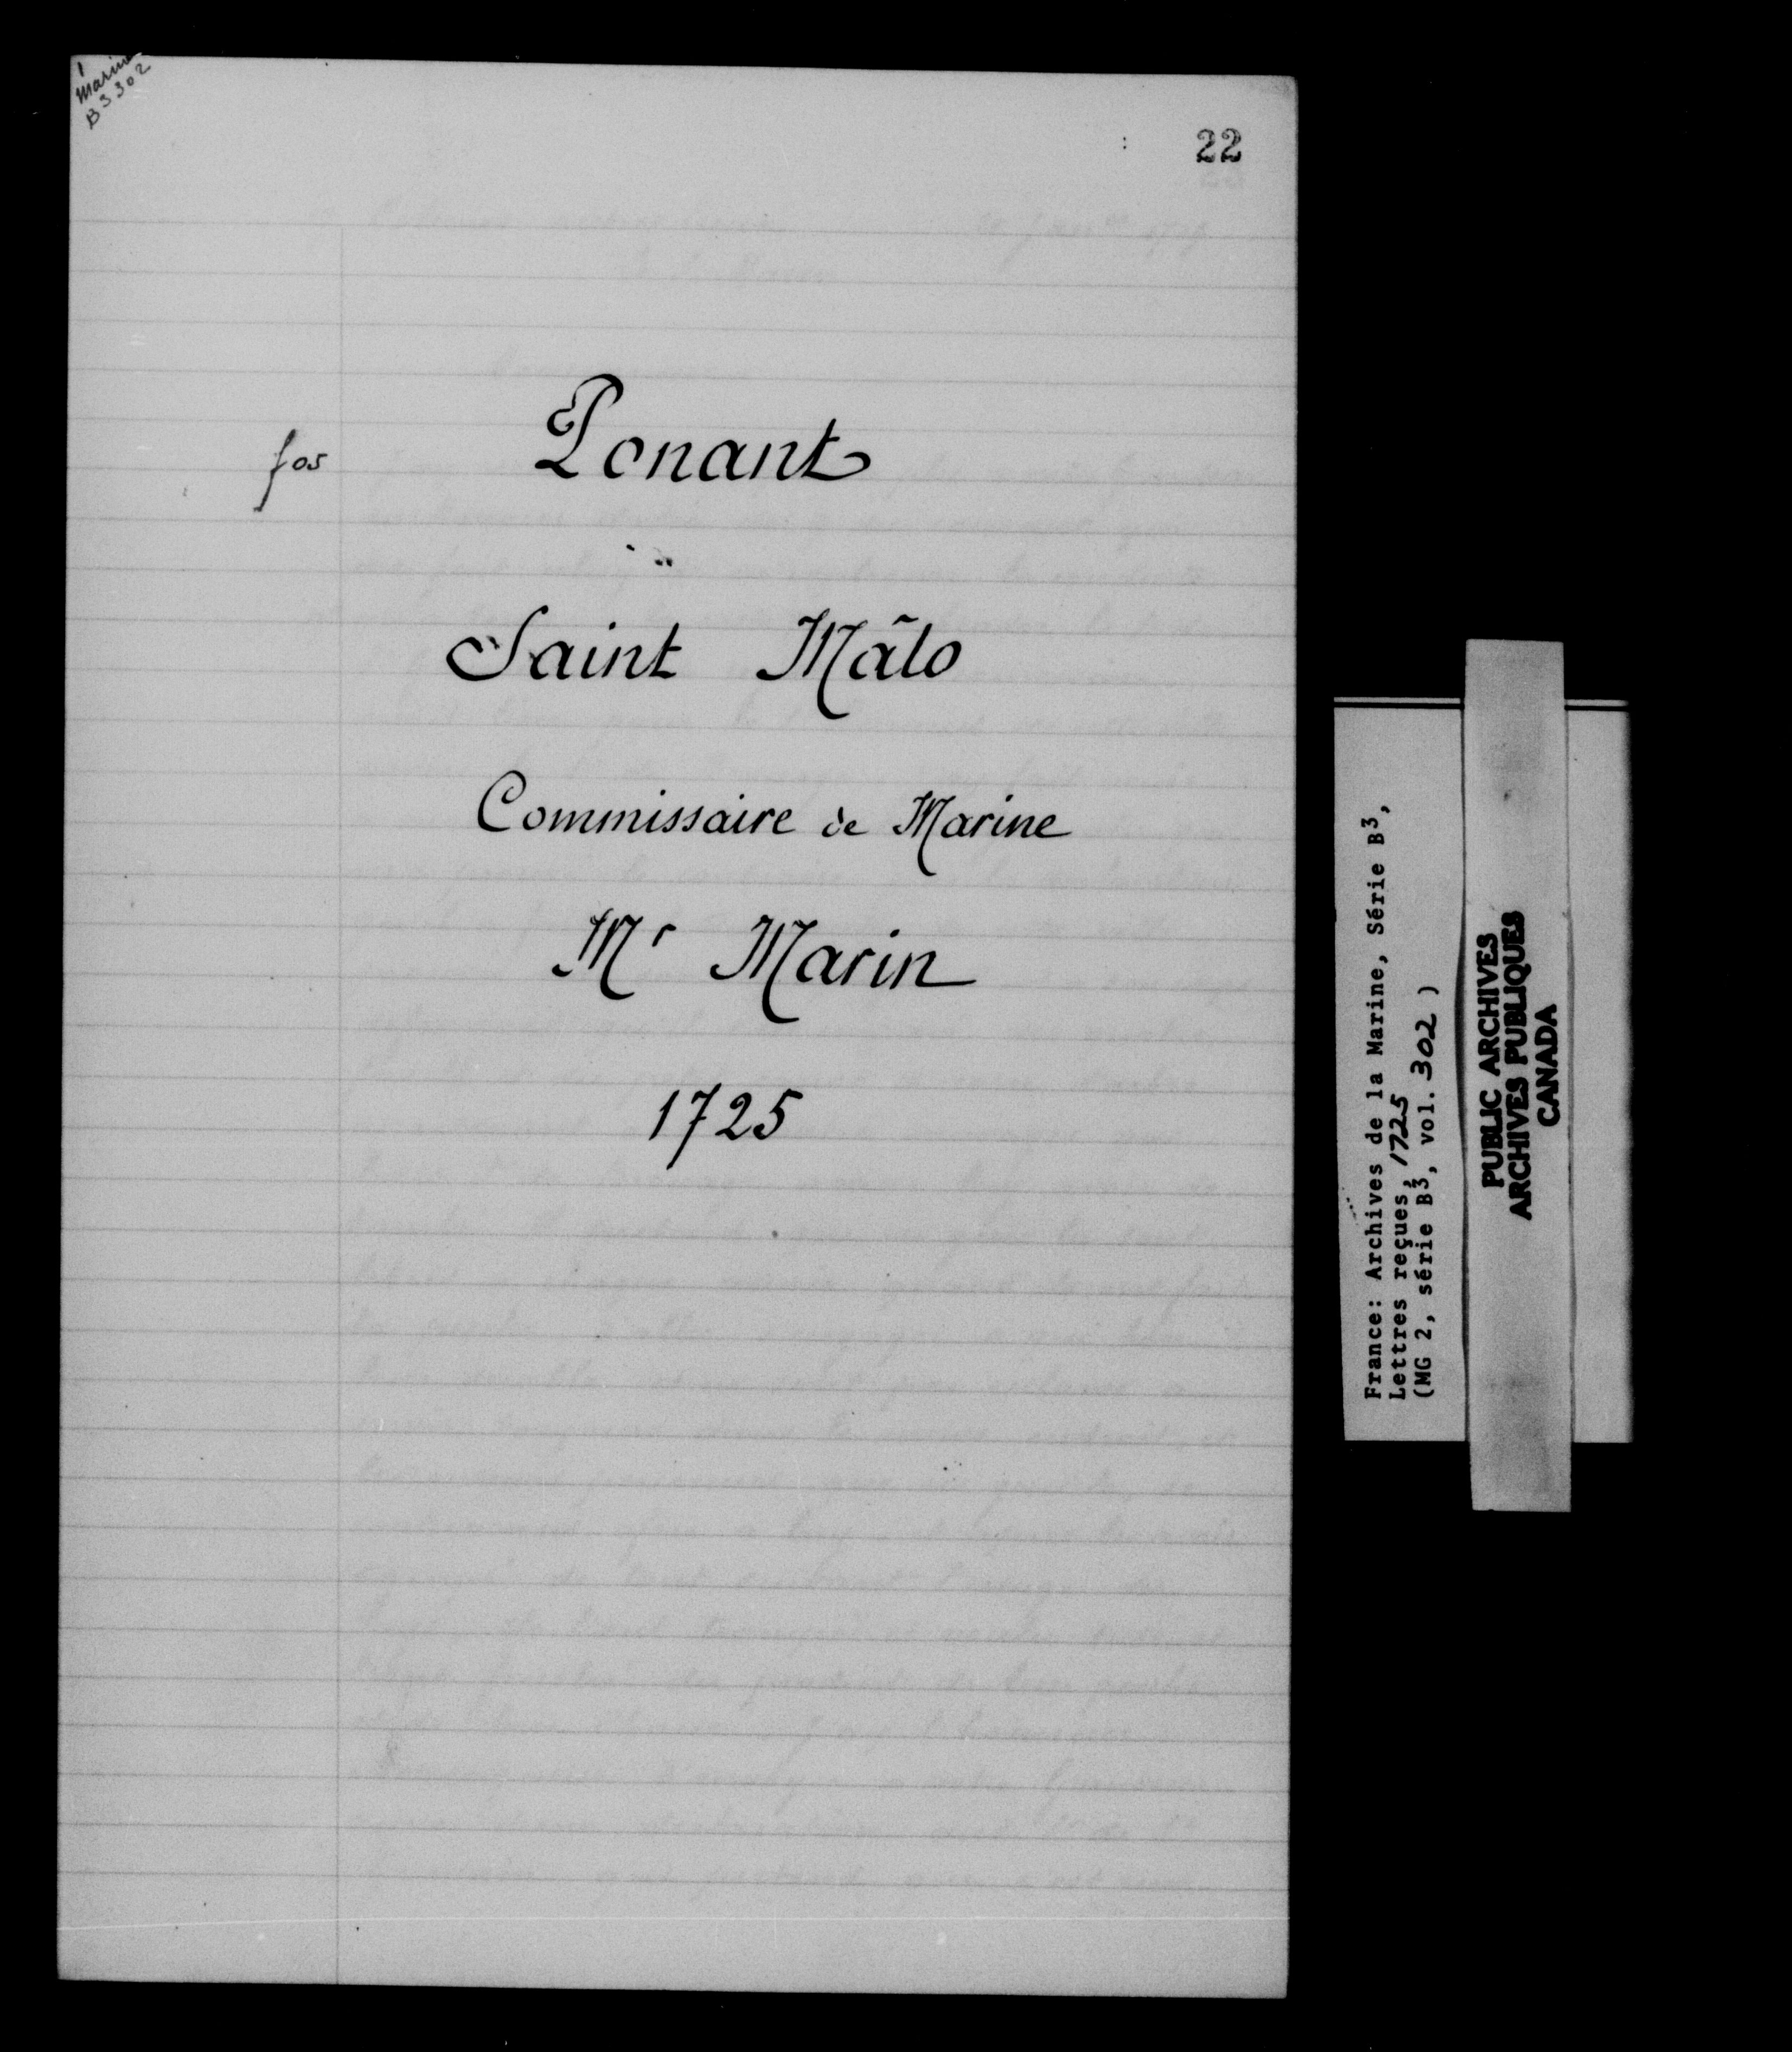 Marine
B 3 302
22
fos
Ponant
Saint Mâlo
Commissaire de Marine
Mr Marin
1725
France: Archives de la Marine, Série B3,
Lettres reçues, 1725
(MG 2, série B3, vol. 302)
PUBLIC ARCHIVES
ARCHIVES PUBLIQUES
CANADA